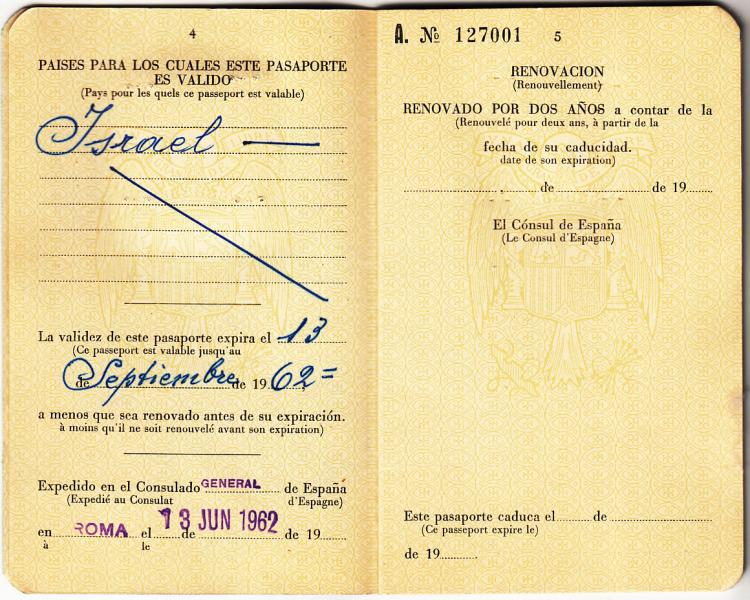 4
PAISES PARA LOS CUALES ESTE PASAPORTE
ES VALIDO
(Pays pour les quels ce passeport est valable)
Israel
La validez de este pasaporte expira el 13
(Ce passeport est valable jusqu'au
de Septiembre de 1962=
a menos que sea renovado antes de su expiración.
à moins qu'il ne soit renouvelé avant son expiration)
Expedido en el Consulado GENERAL de España
(Expedié au Consulat d'Espagne)
en ROMA el 13 JUN 1962 de de 19
à le
A. Nº 127001 5
RENOVACION
(Renouvellement)
RENOVADO POR DOS AÑOS a contar de la
(Renouvelé pour deux ans, à partir de la
fecha de su caducidad.
date de son expiration)
de de 19
El Cónsul de España
(Le Consul d'Espagne)
Este pasaporte caduca el de
(Ce passeport expire le)
de 19